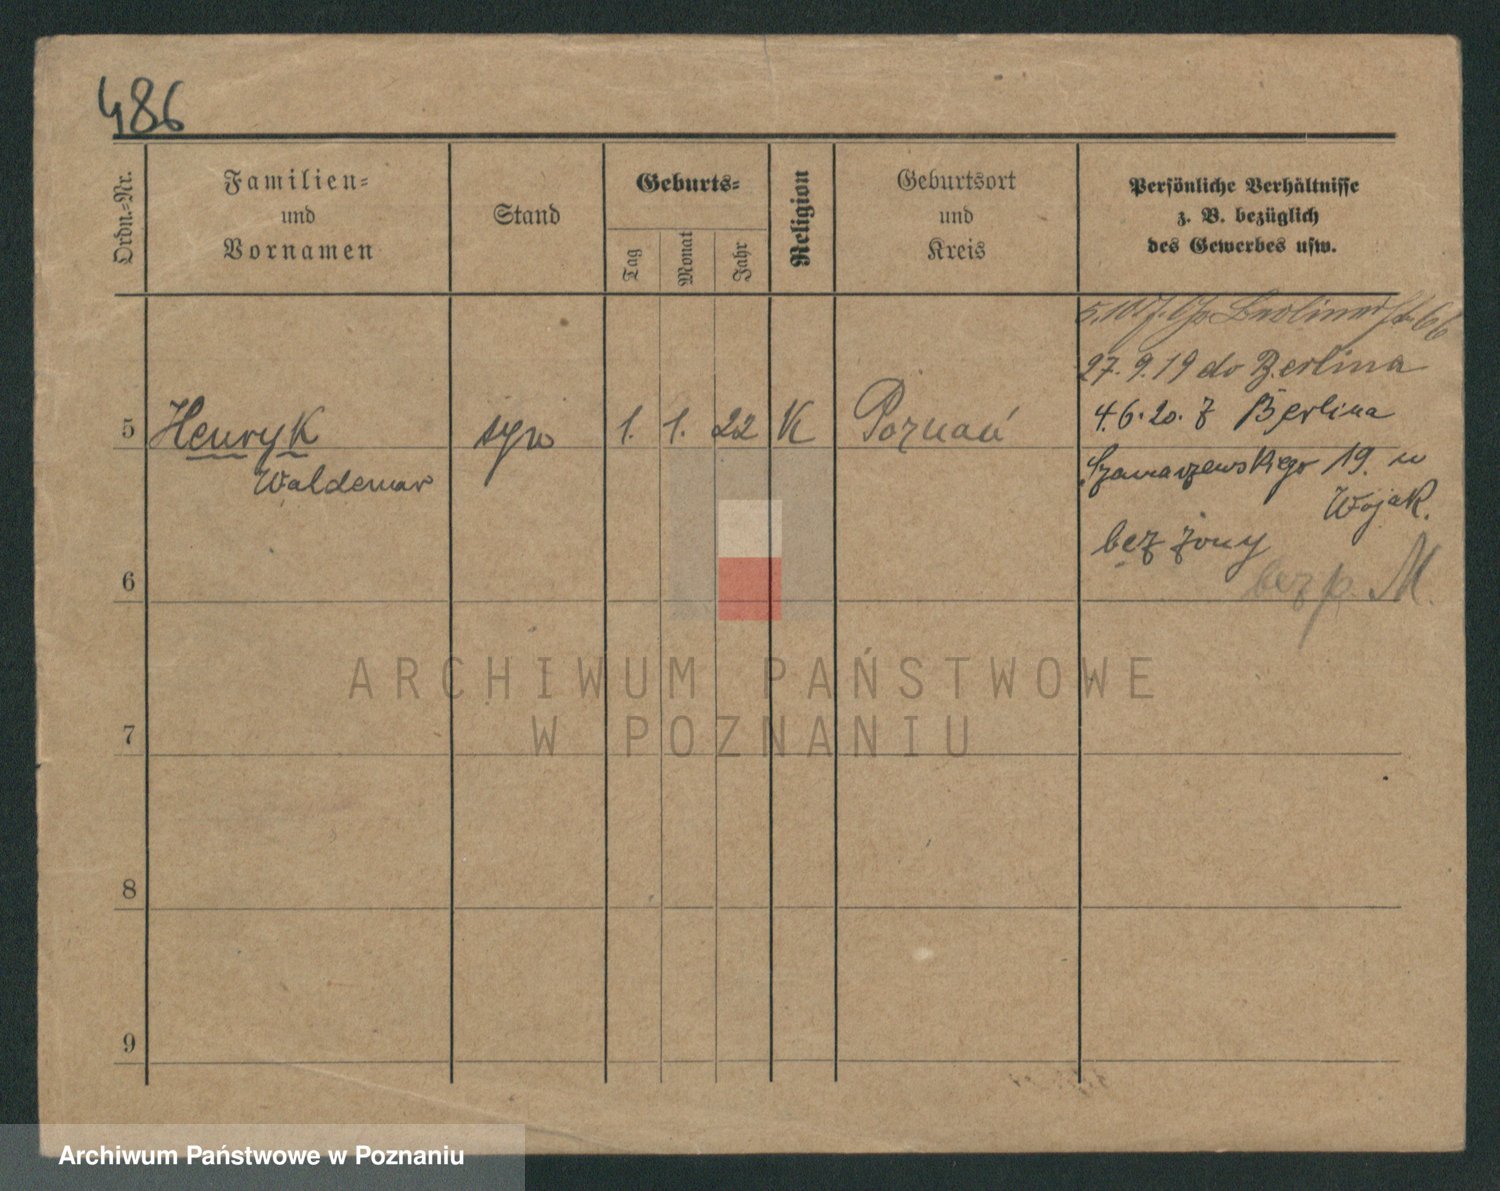 486
Ordn.-Nr.
Familien-
und
Vornamen
Stand
Geburts-
Tag
Monat
Jahr
Religion
Geburtsort
und
Kreis
Persönliche Verhältnisse
z. B. bezüglich
des Gewerbes usw.
Berlinerst 66
27. 9. 19 do Berlina
4. 6. 20. z Berlina
5 Henryk syn 1. 1. 22 K Poznań
Waldemar
Szamarzewskiego 19. u
Wojak.
bez żony
bez p. M.
6
7
8
9
ARCHIWUM PAŃSTWOWE
W POZNANIU
Archiwum Państwowe w Poznaniu